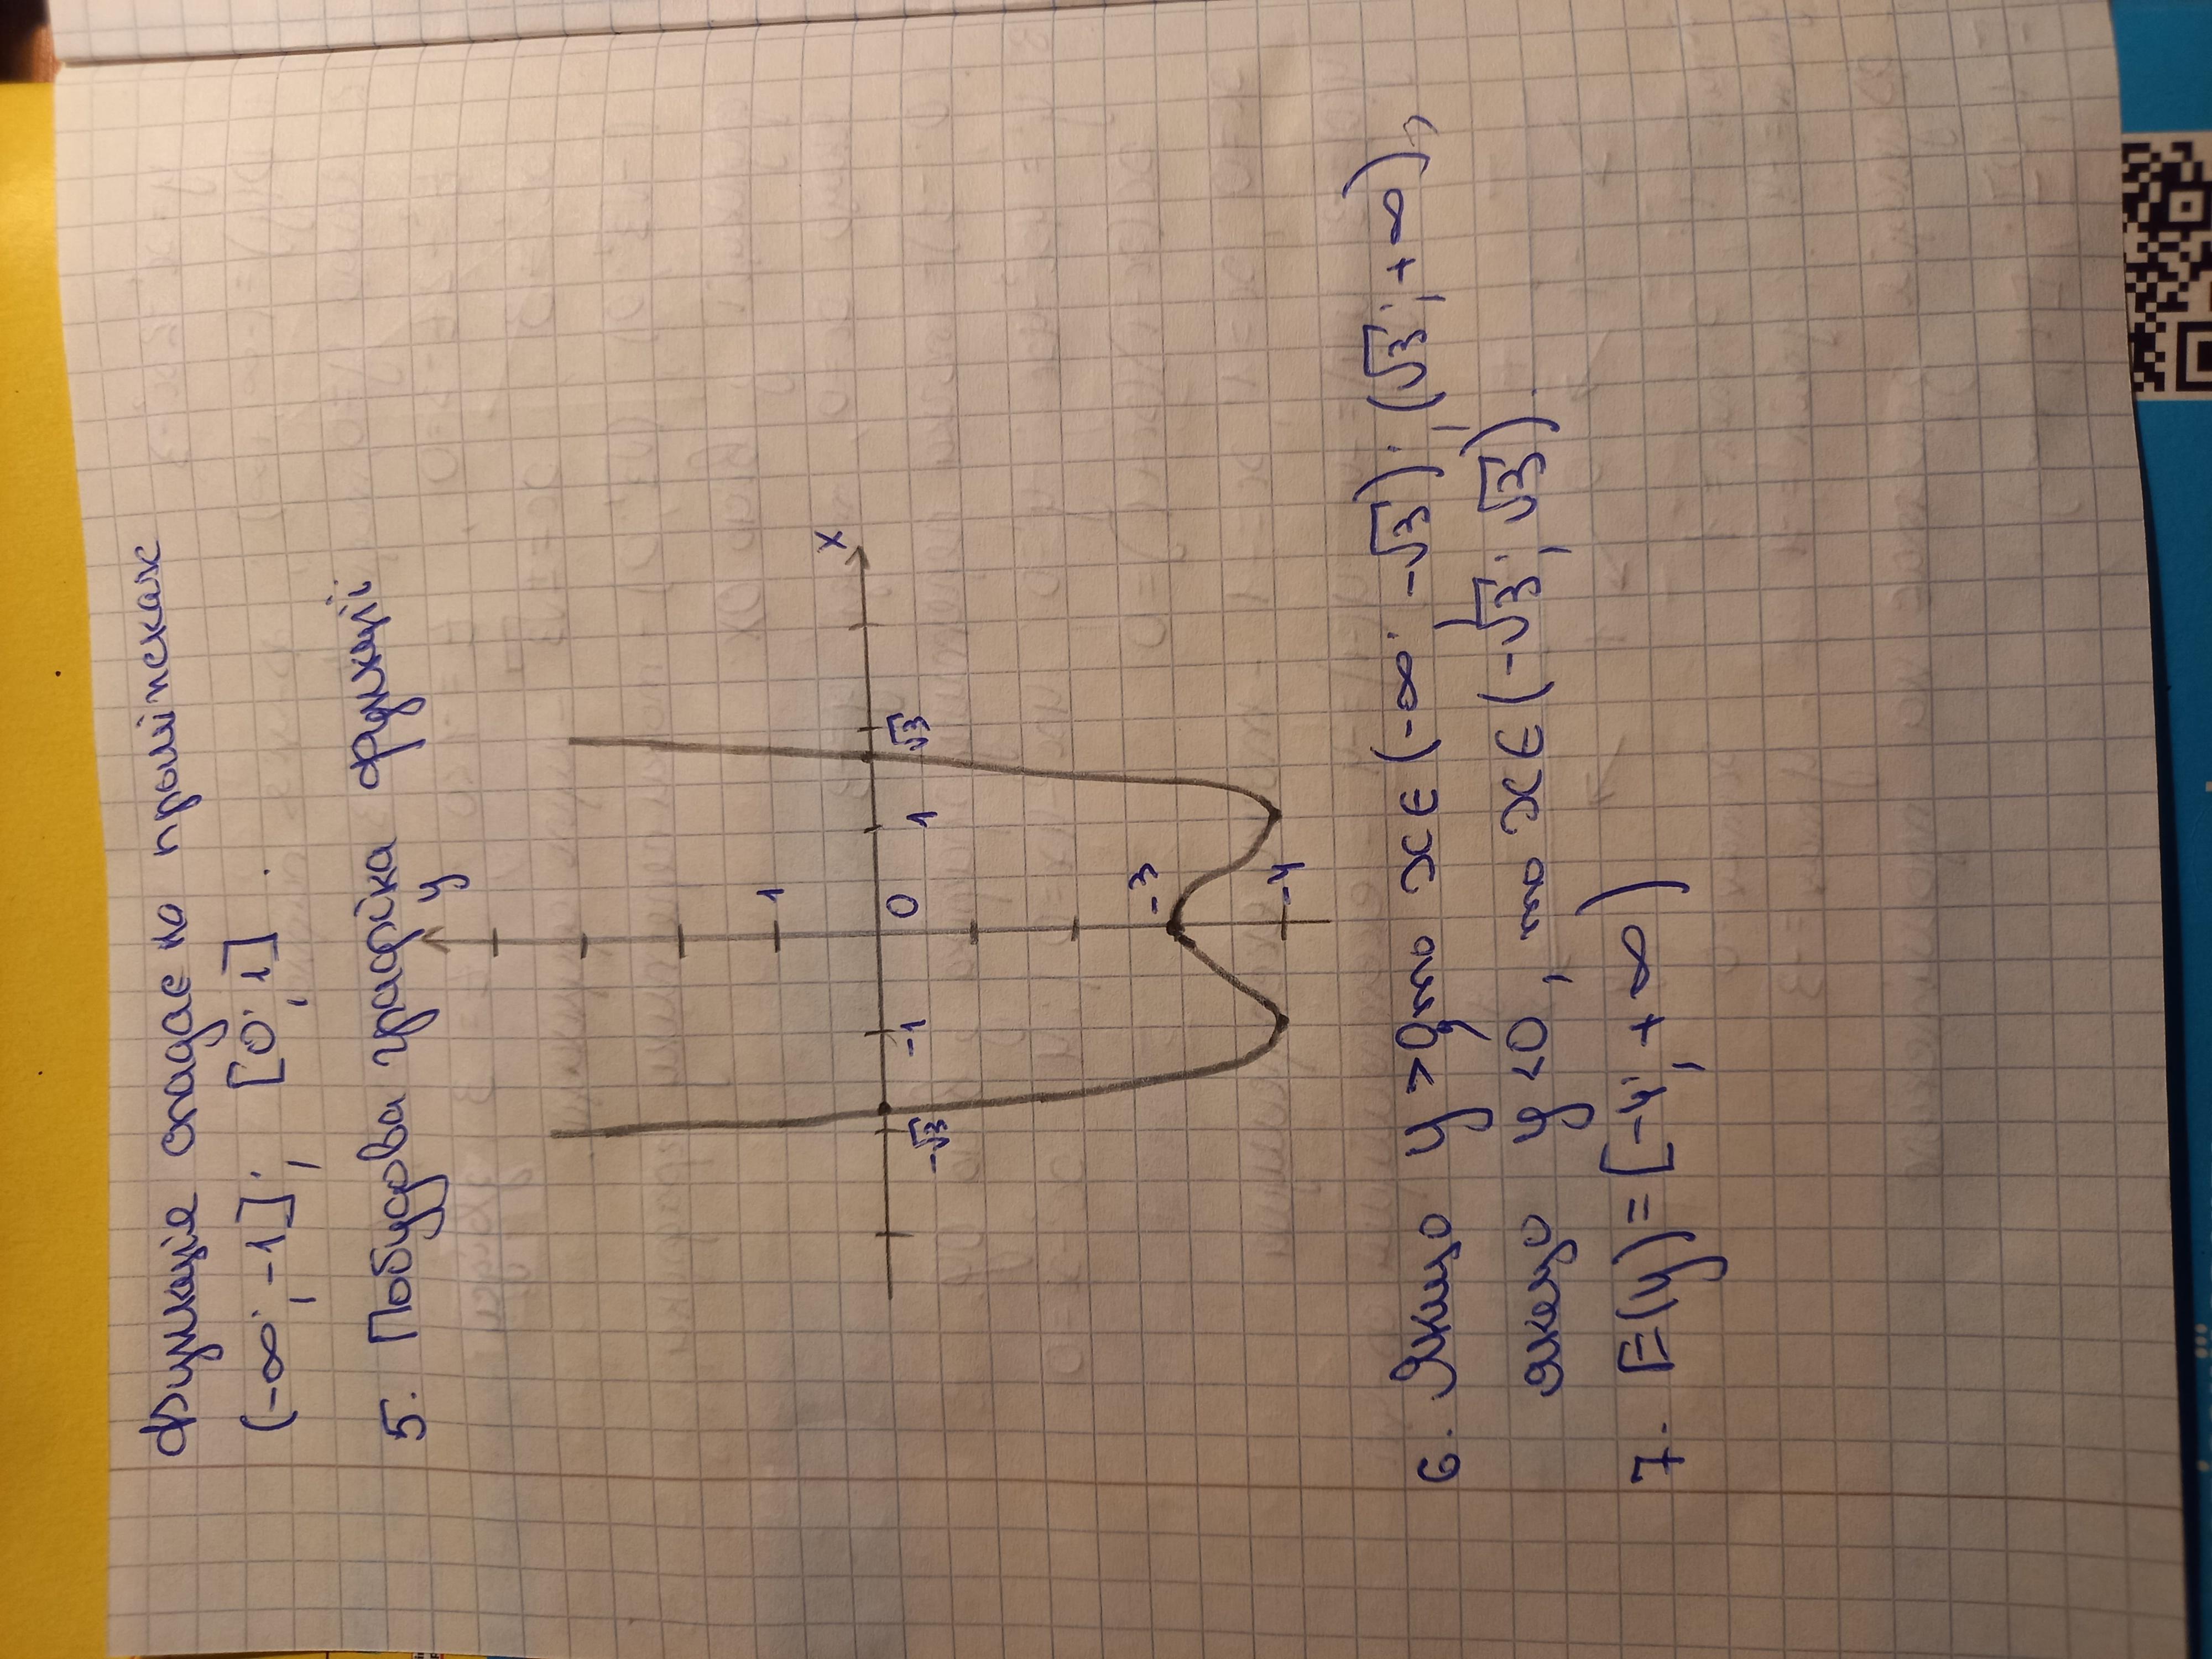 функція спадає на проміжках
(-∞; -1]; [0; 1].
5. Побудова графіка функції
y
1
x
-√3 -1 0 1 √3
-3
-4
6. Якщо y > 0, то x ∈ (-∞; -√3); (√3; +∞),
якщо y < 0, то x ∈ (-√3; √3).
7. E(y) = [-4; +∞)